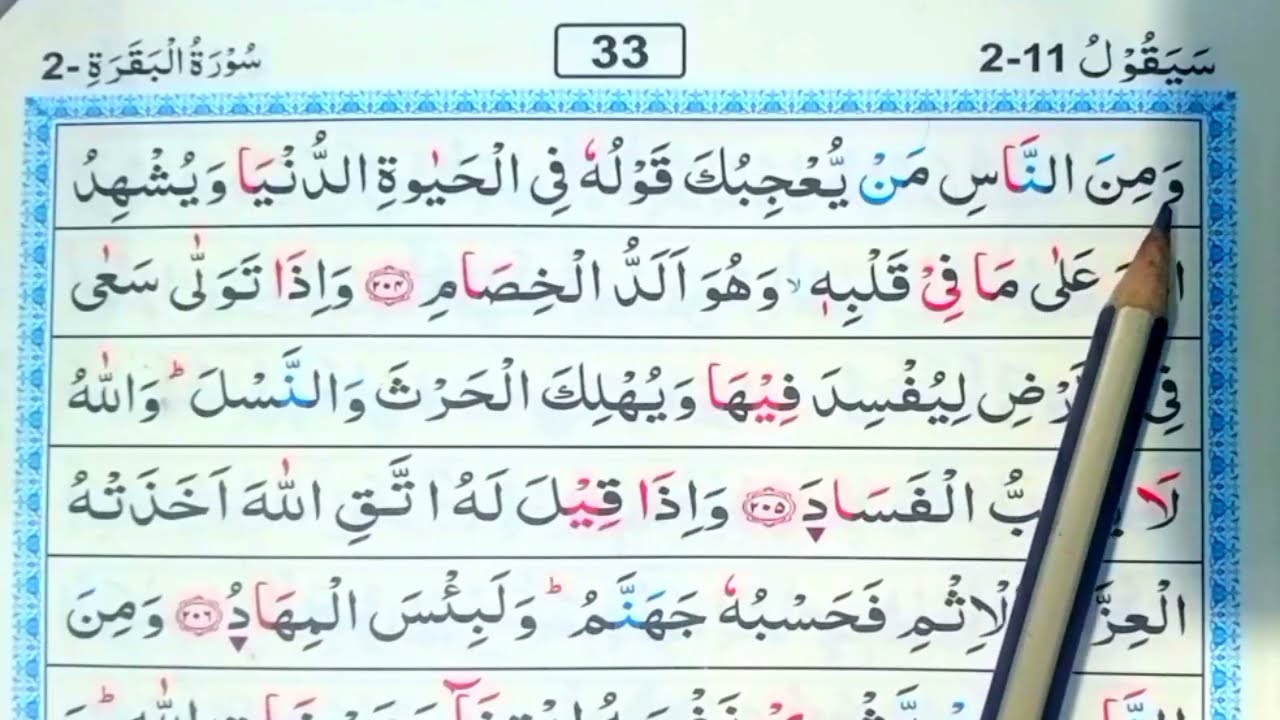 سَيَقُوْلُ 2-11
33
سُوْرَةُ الْبَقَرَةِ -2
وَمِنَ النَّاسِ مَنْ يُّعْجِبُكَ قَوْلُهٗ فِي الْحَيٰوةِ الدُّنْيَا وَيُشْهِدُ
عَلٰى مَا فِيْ قَلْبِهٖ ۙ وَهُوَ اَلَدُّ الْخِصَامِ ۝۲۰۴ وَاِذَا تَوَلّٰى سَعٰى
فِي لِيُفْسِدَ فِيْهَا وَيُهْلِكَ الْحَرْثَ وَالنَّسْلَ ؕ وَاللّٰهُ
لَا الْفَسَادَ ۝۲۰۵ وَاِذَا قِيْلَ لَهُ اتَّقِ اللّٰهَ اَخَذَتْهُ
فَحَسْبُهٗ جَهَنَّمُ ؕ وَلَبِئْسَ الْمِهَادُ ۝۲۰۶ وَمِنَ